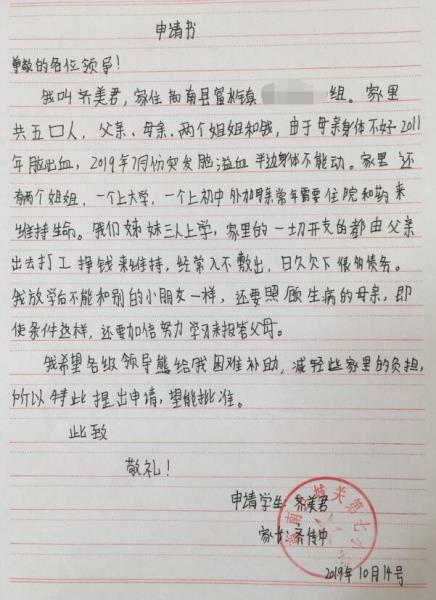 申请书
尊敬的各位领导！
我叫齐美君，家住商南县富水镇 组。家里
共五口人，父亲、母亲、两个姐姐和我，由于母亲身体不好2011
年脑出血，2019年7月份突发脑溢血半边身体不能动。家里还
有两个姐姐，一个上大学，一个上初中外加母亲常年需要住院和药来
维持生命。我们姊妹三人上学，家里的一切开支的都由父亲
出去打工挣钱来维持，经常入不敷出，日久欠下很多债务。
我放学后不能和别的小朋友一样，还要照顾生病的母亲，即
使条件这样，还要加倍努力学习来报答父母。
我希望各级领导能给我困难补助，减轻些家里的负担，
所以特此提出申请，望能批准。
此致
敬礼！
申请学生：齐美君
家长：齐传中
2019年10月14号
南 城关第七小